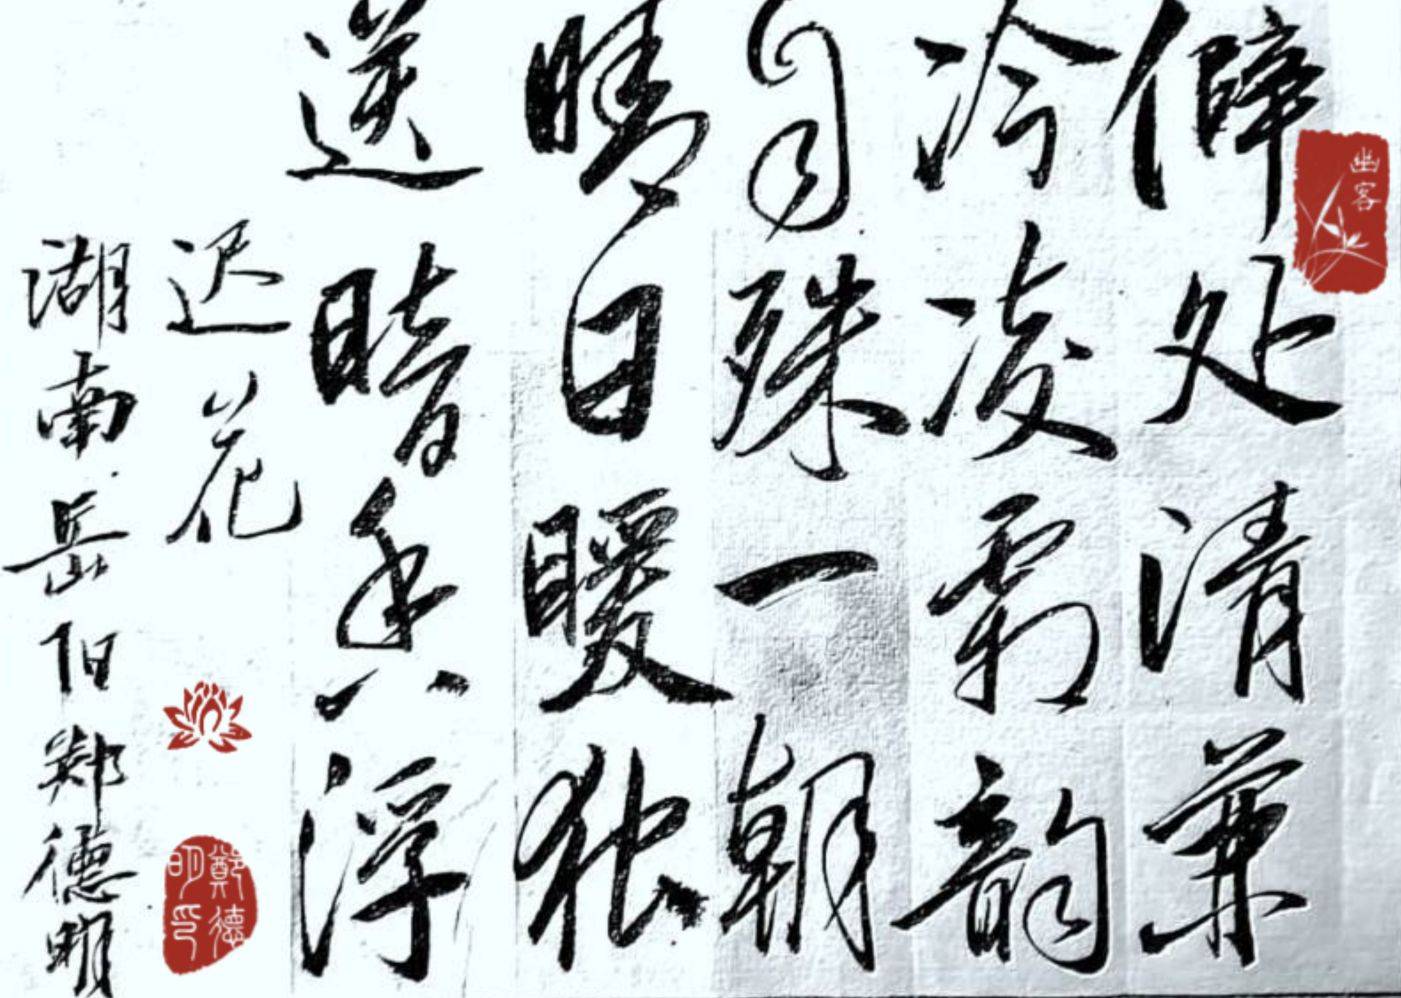 僻处清兼
冷凌霜韵
自殊一朝
晴日暖独
送暗香浮
迟花
湖南岳阳郑德明
幽客
鄭德明印